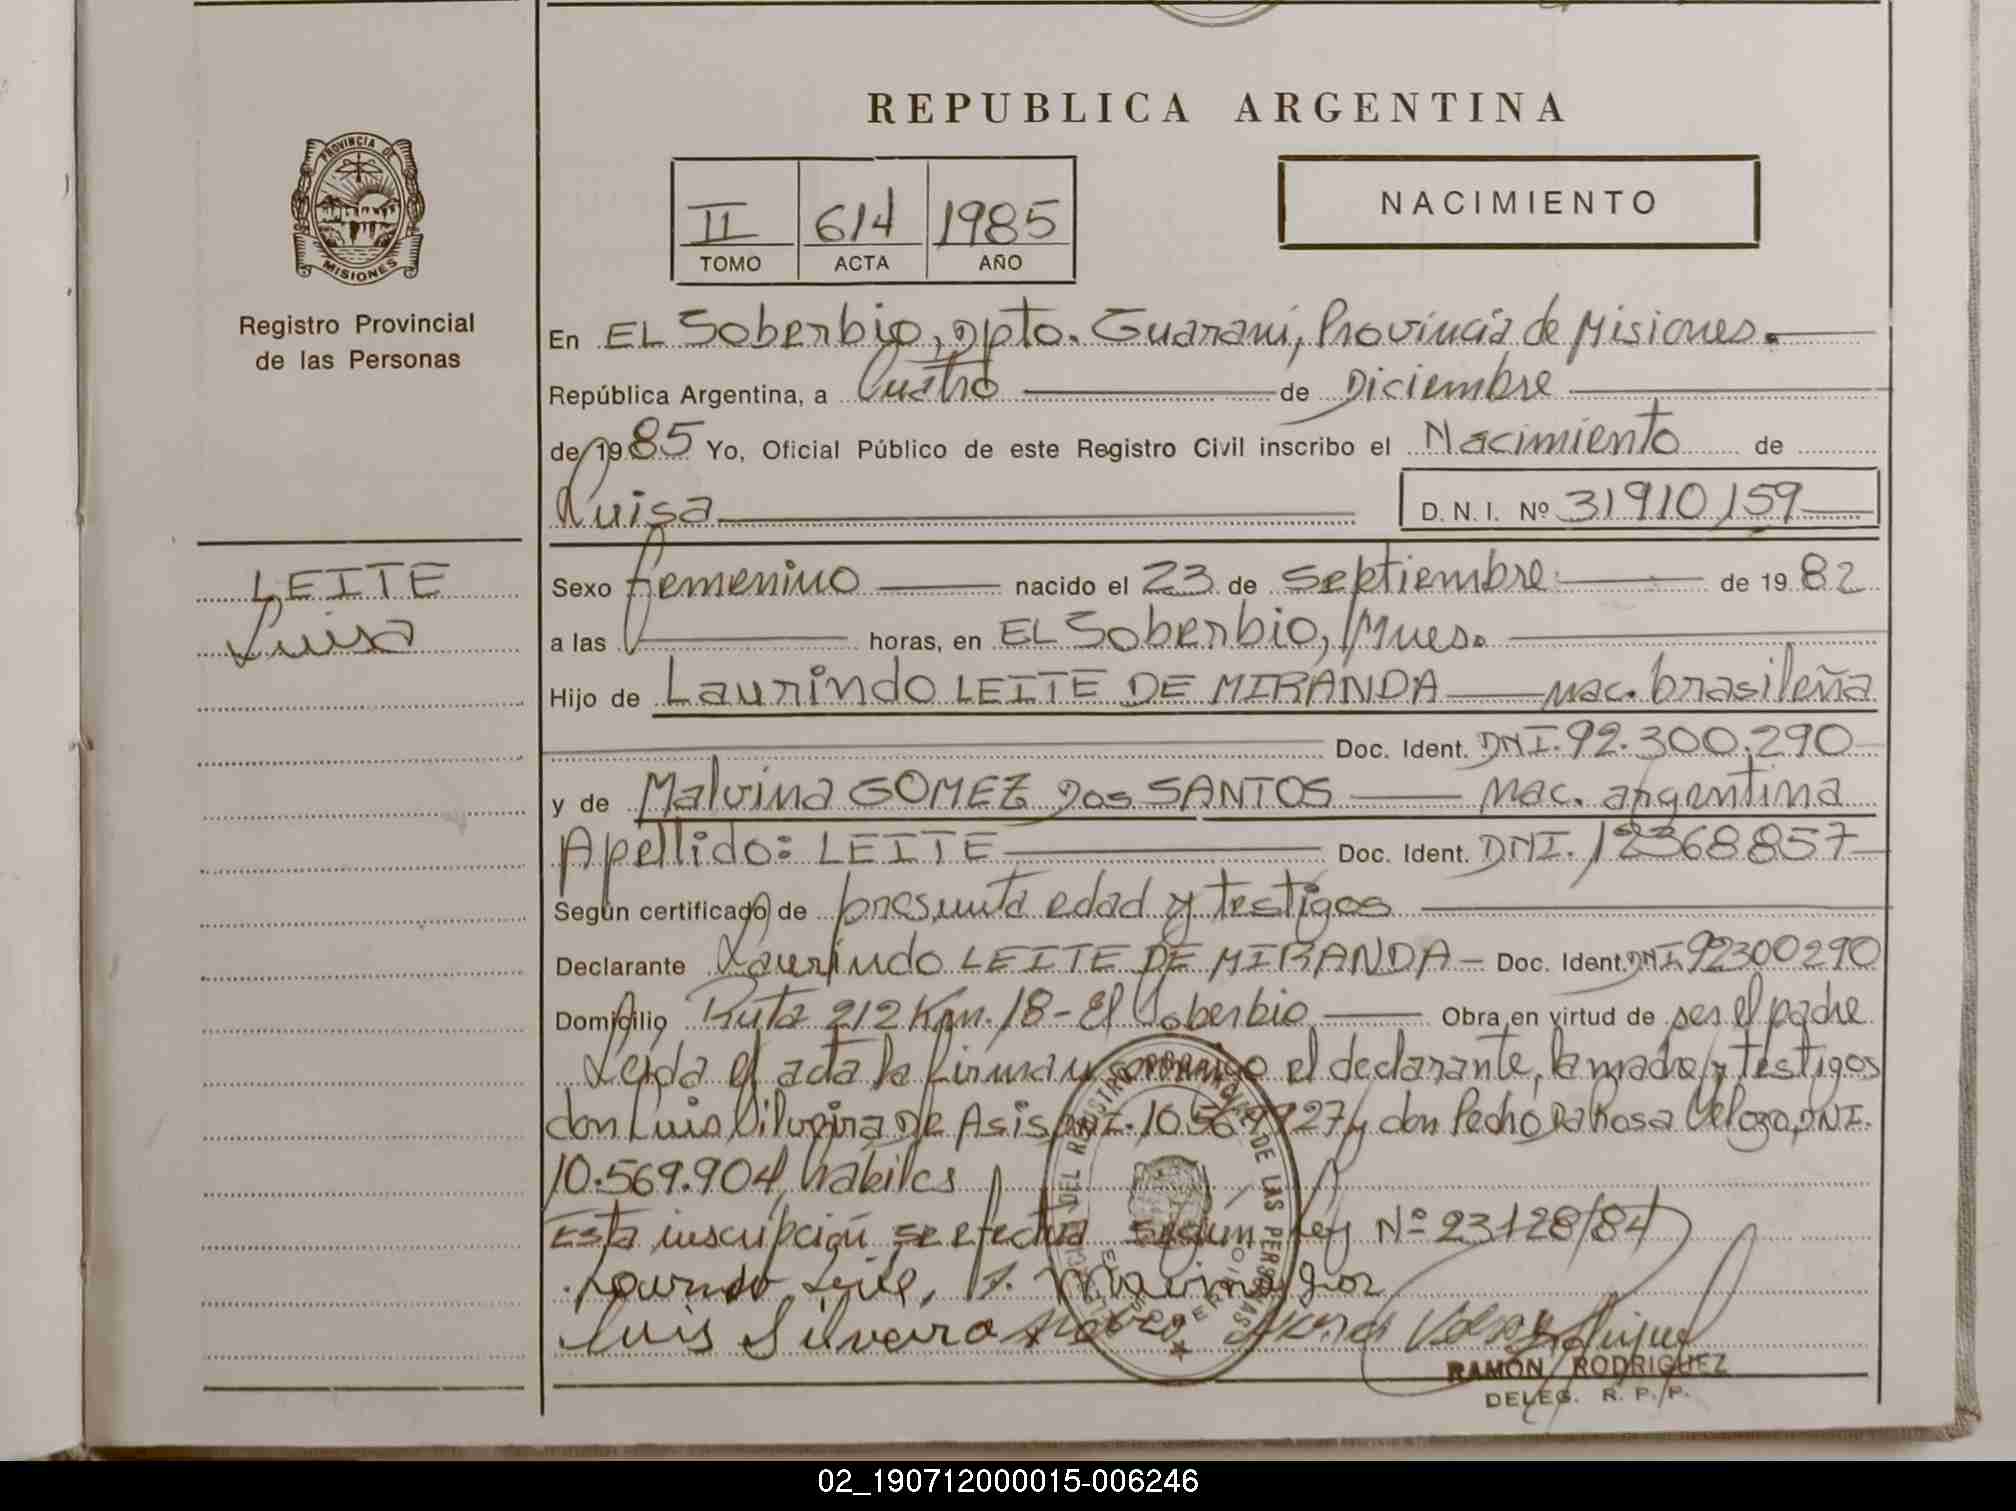 REPUBLICA ARGENTINA
PROVINCIA DE
MISIONES
Registro Provincial
de las Personas
II 614 1985
TOMO ACTA AÑO
NACIMIENTO
En EL Soberbio, Dpto. Guaraní, Provincia de Misiones.
República Argentina, a Cuatro de Diciembre
de 1985 Yo, Oficial Público de este Registro Civil inscribo el Nacimiento de
Luisa D. N. I. Nº 31910159
LEITE
Luisa
Sexo femenino nacido el 23 de septiembre de 1982
a las horas, en EL Soberbio, Mnes.
Hijo de Laurindo LEITE DE MIRANDA nac. brasileña
Doc. Ident. DNI. 92.300.290
y de Malvina GOMEZ Dos SANTOS nac. argentina
Apellido: LEITE Doc. Ident. DNI. 12368857
Según certificado de presunta edad y testigos
Declarante Laurindo LEITE DE MIRANDA Doc. Ident. DNI 92300290
Domicilio Ruta 212 Km. 18 - El Soberbio Obra en virtud de ser el padre
Leida el acta la firman conmigo el declarante, la madre y testigos
don Luis Silveira De Asis DNI. 10.569.927 y don Pedro Da Rosa Velozo, DNI.
10.569.904, habiles
Esta inscripción se efectua según Ley Nº 23128/84
Luis Silveira
RAMÓN RODRIGUEZ
DELEG. R. P. P.
02_190712000015-006246